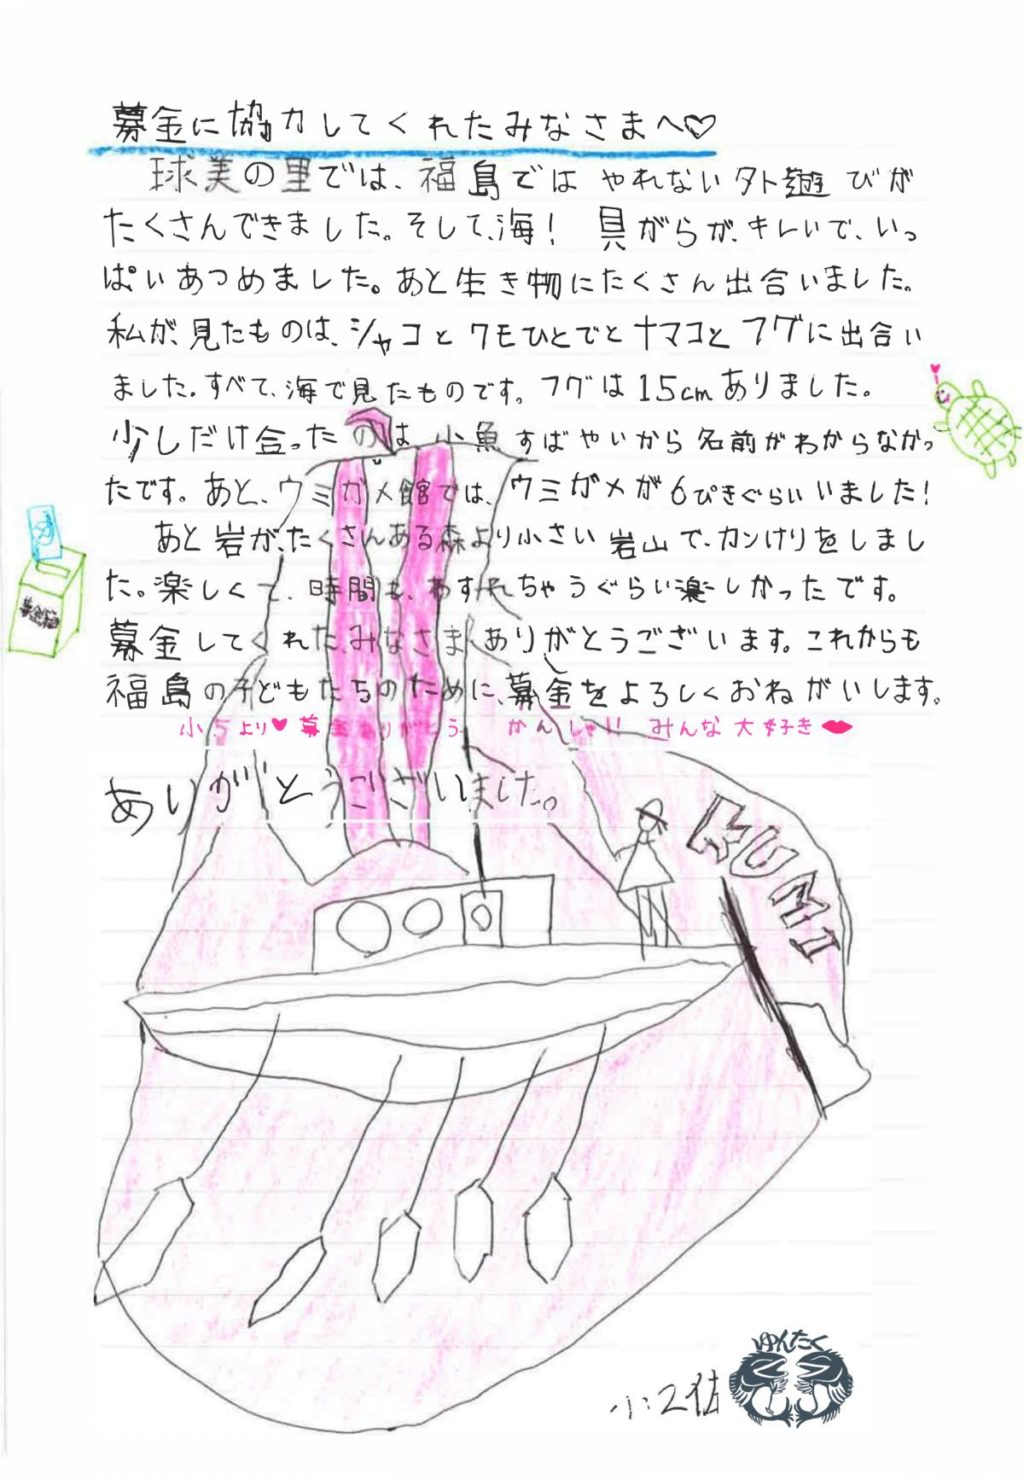 募金に協力してくれたみなさまへ♡
球美の里では、福島ではやれない外遊びが
たくさんできました。そして、海！貝がらが、キレいで、いっ
ぱいあつめました。あと生き物にたくさん出合いました。
私が、見たものは、シャコとクモひとでとナマコとフグに出合い
ました。すべて、海で見たものです。フグは15cmありました。
少しだけ合ったのは小魚すばやいから名前がわからなかっ
たです。あと、ウミガメ館では、ウミガメが6ぴきぐらいいました！
あと岩が、たくさんある森より小さい岩山で、カンけりをしまし
た。楽しくて、時間も、わすれちゃうぐらい楽しかったです。
募金してくれたみなさまありがとうございます。これからも
福島の子どもたちのために、募金をよろしくおねがいします。
小5より♥募金ありがとう かんしゃ!! みんな大好き
ありがとうございました。
募金箱
KUMI
ゆんたく